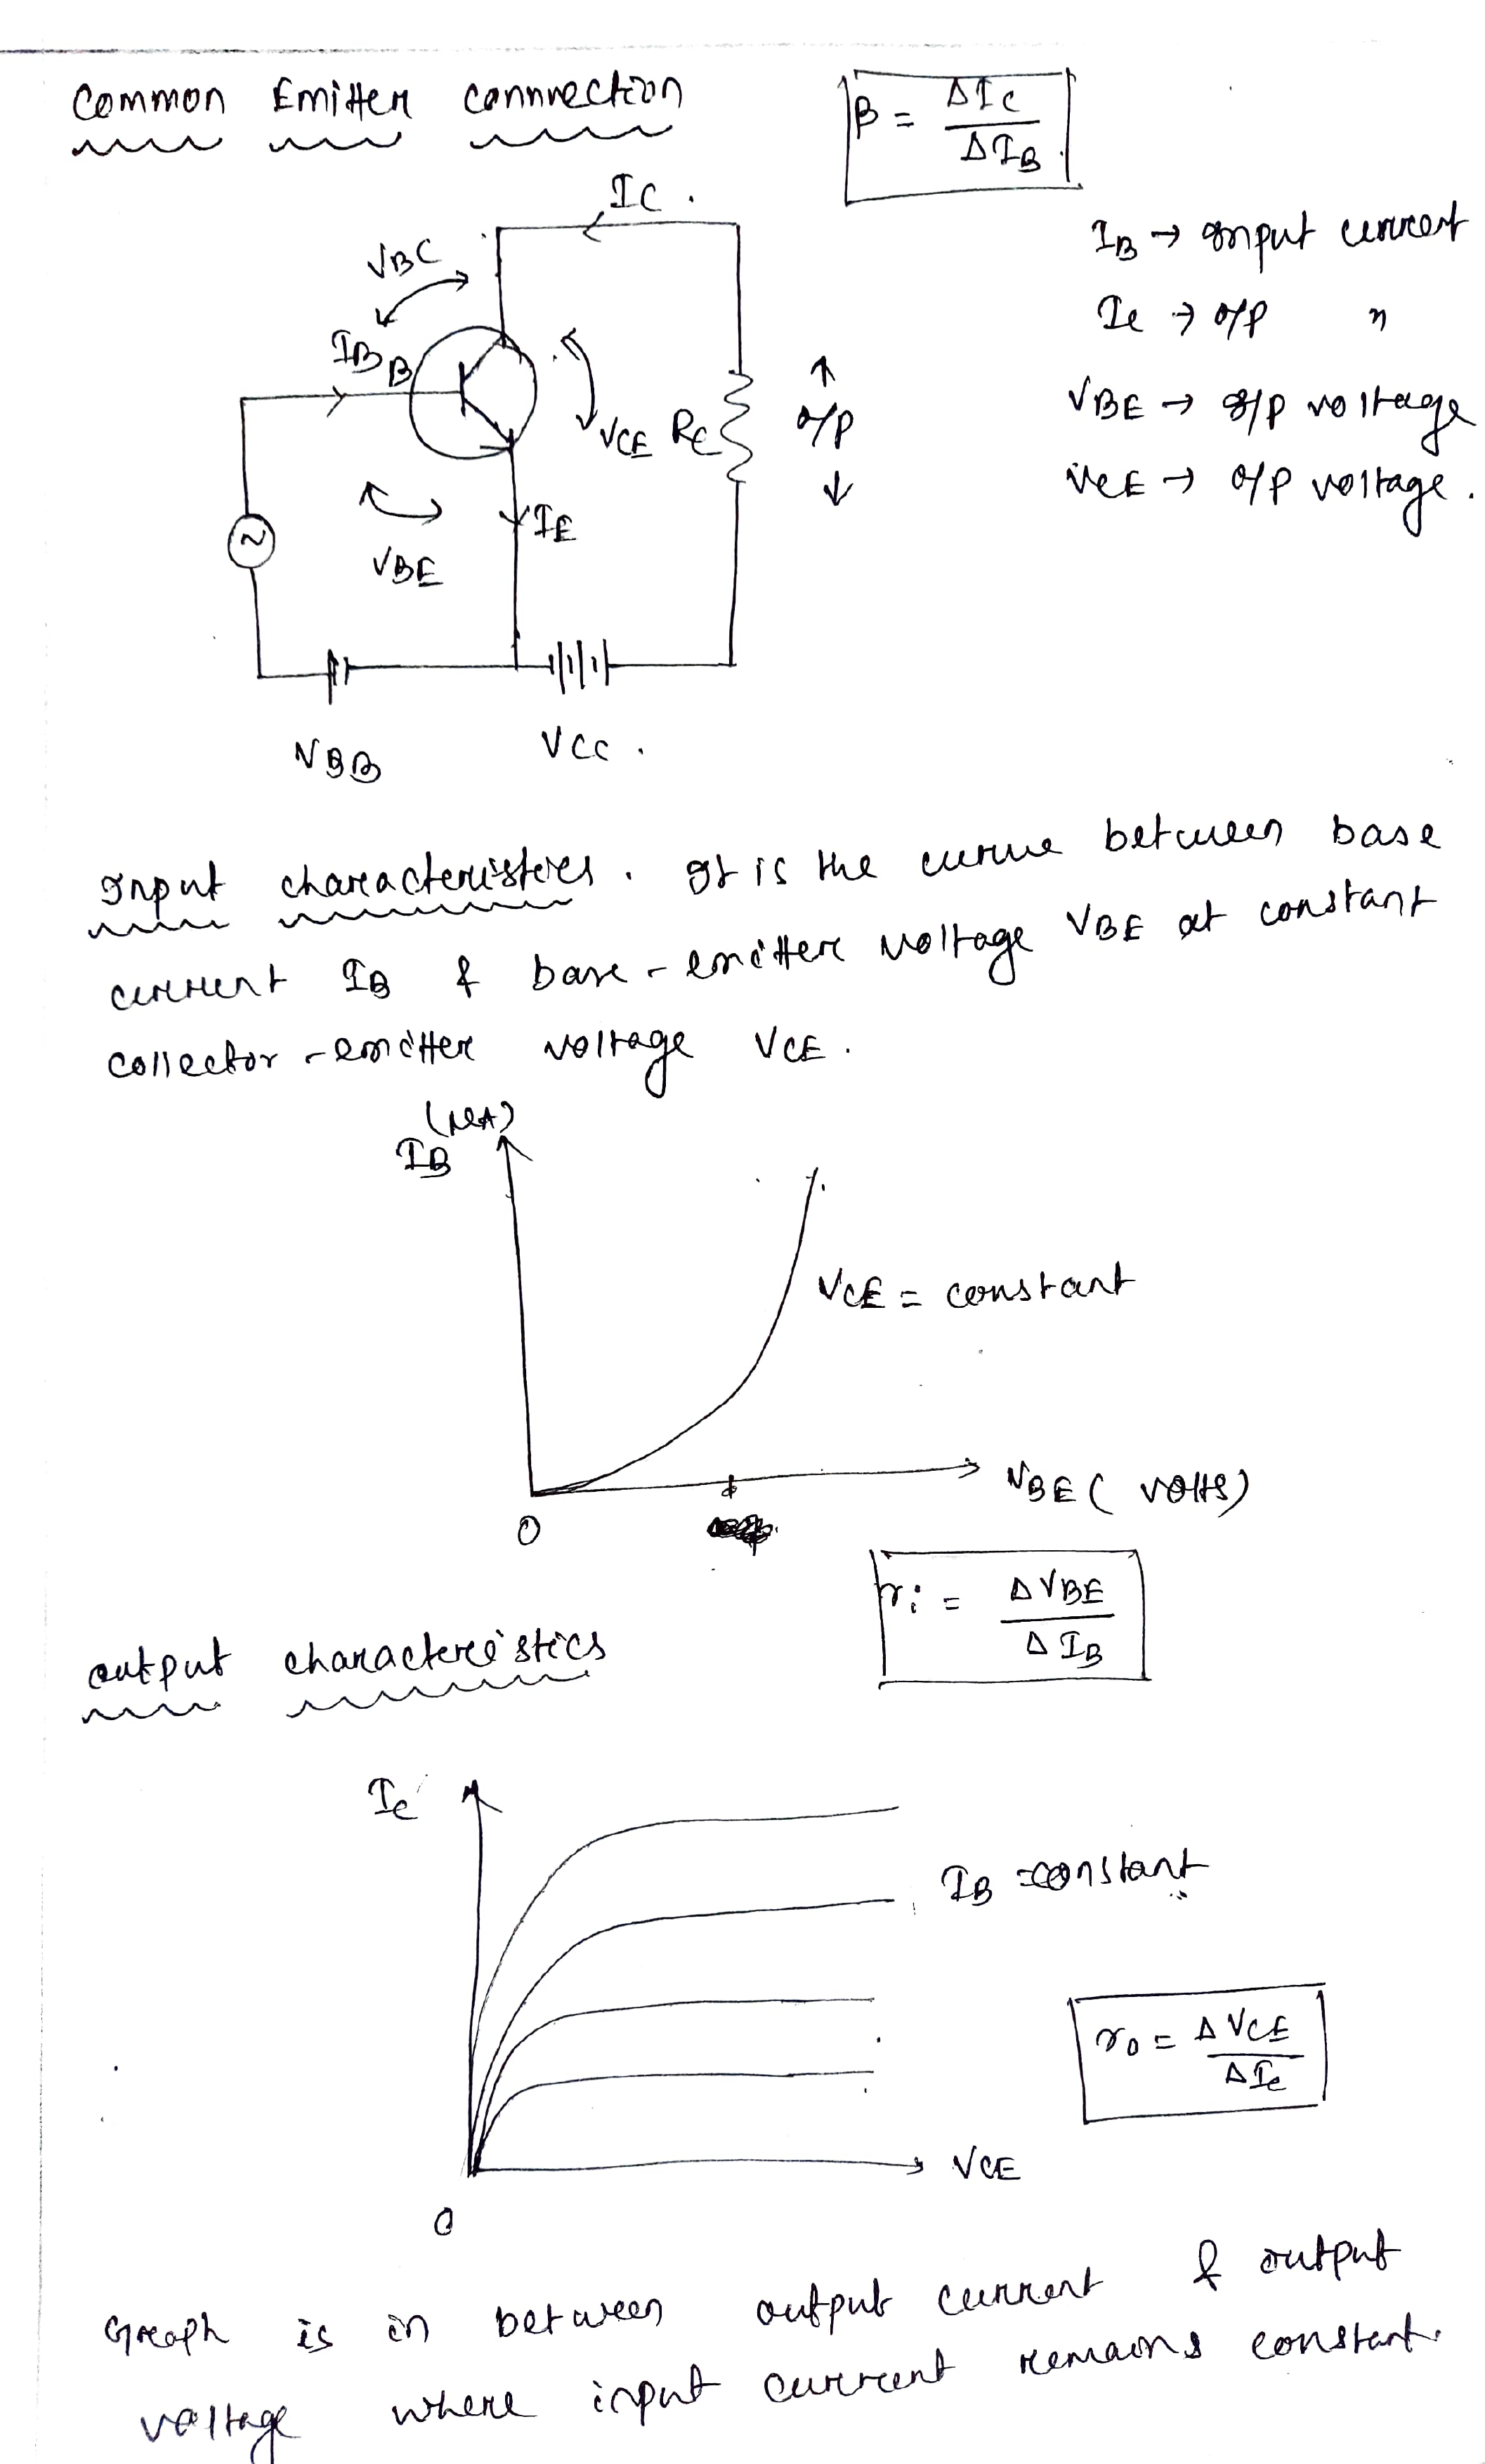 Common Emitter connnection
β = ΔIC / ΔIB
IC.
VBC
IB B
VCE RC
o/p
IE
VBE
VBB
VCC.
IB → Input current
Ic → o/p "
VBE → I/p voltage
VCE → o/p voltage.
Input characteristics. It is the curve between base
current IB & base-emitter voltage VBE at constant
collector-emitter voltage VCE.
(μA)
IB
VCE = constant
VBE (volts)
0
ri = ΔVBE / ΔIB
output characteristics
Ic
IB = constant
ro = ΔVCE / ΔIc
VCE
0
Graph is in between output current & output
voltage where input current remains constant.